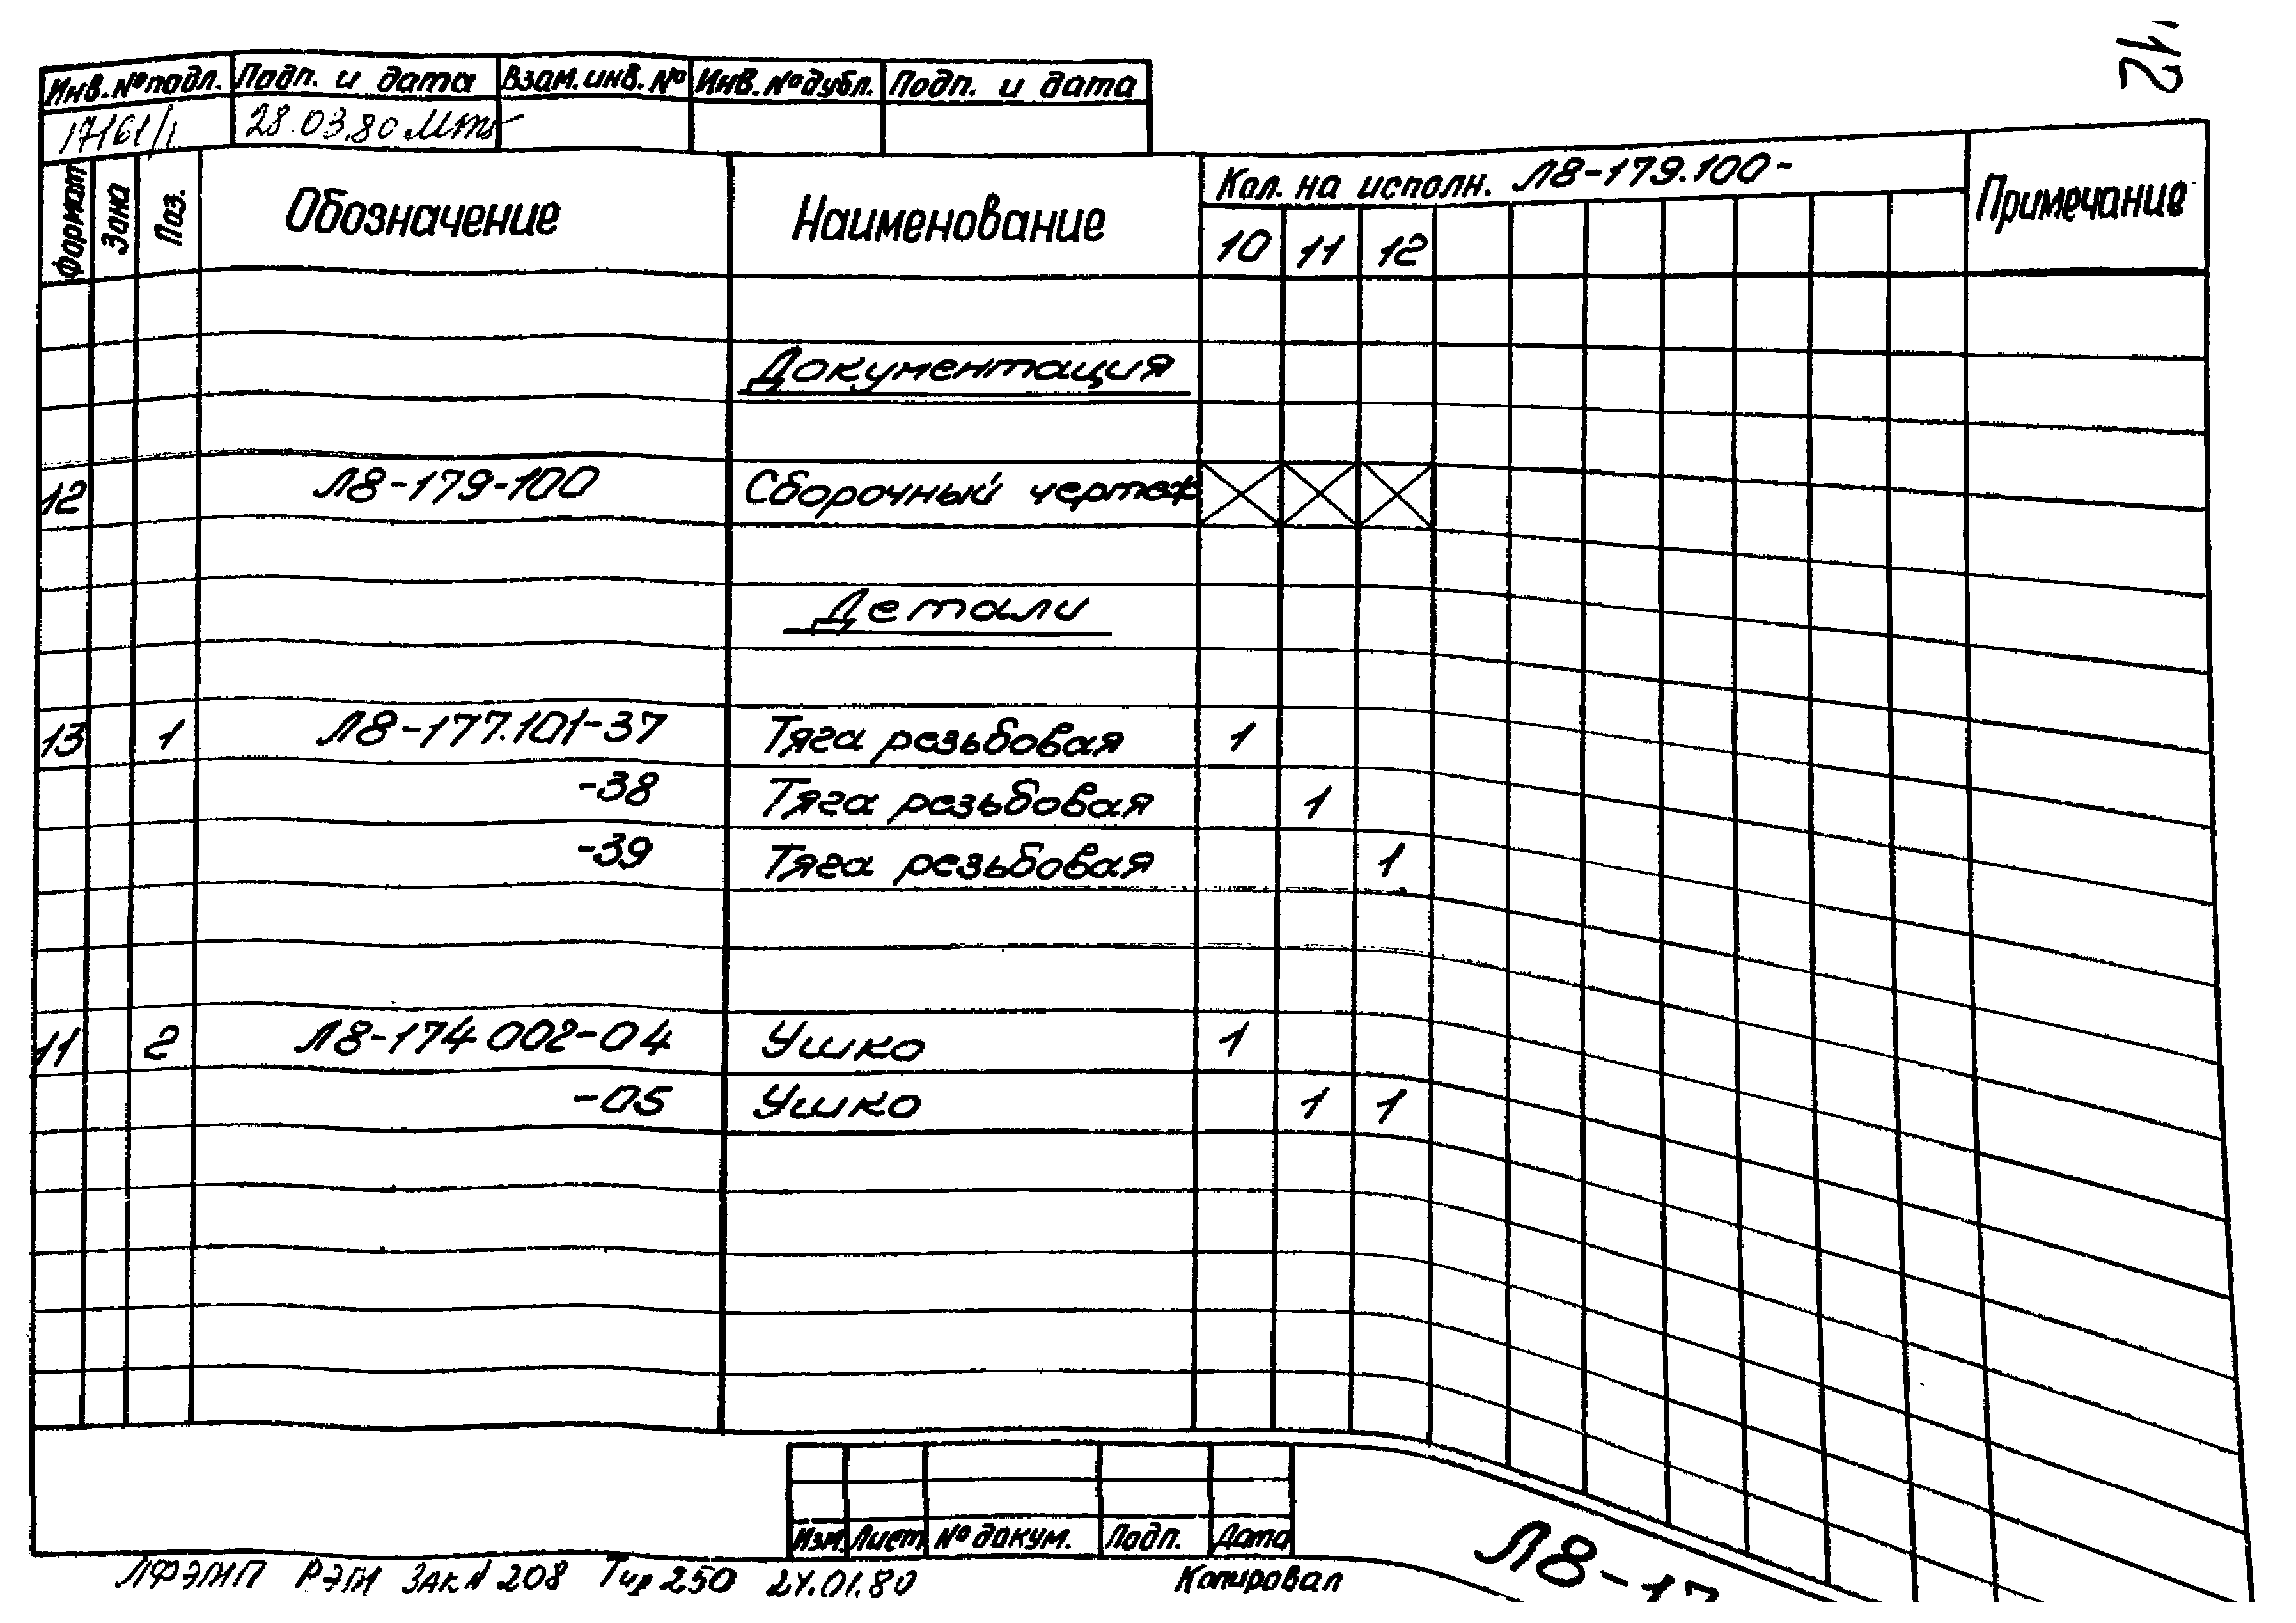 112
Инв.№подл. Подп. и дата Взам.инв.№ Инв.№дубл. Подп. и дата
17161/1 28.03.80
Формат Зона Поз. Обозначение Наименование Кол. на исполн. Л8-179.100- Примечание
10 11 12
Документация
12 Л8-179-100 Сборочный чертеж
Детали
13 1 Л8-177.101-37 Тяга резьбовая 1
-38 Тяга резьбовая 1
-39 Тяга резьбовая 1
11 2 Л8-174.002-04 Ушко 1
-05 Ушко 1 1
Изм. Лист № докум. Подп. Дата
Л8-17
ЛФЭПИП РЭГИ Зак № 208 Тир 250 24.01.80 Копировал